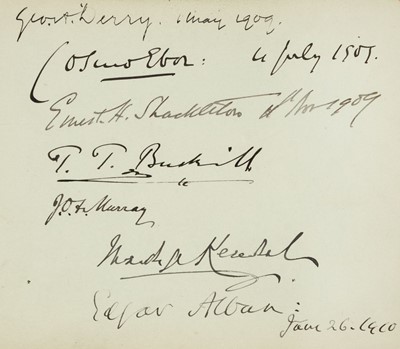 Geo. A. Derry. 1 May 1909.
Cosmo Ebor: 4 July 1909.
Ernest. H. Shackleton Nov 1909
T. T. Bucknill
J. O. F. Murray
Kendal
Edgar Alban:
Jan 26. 1910